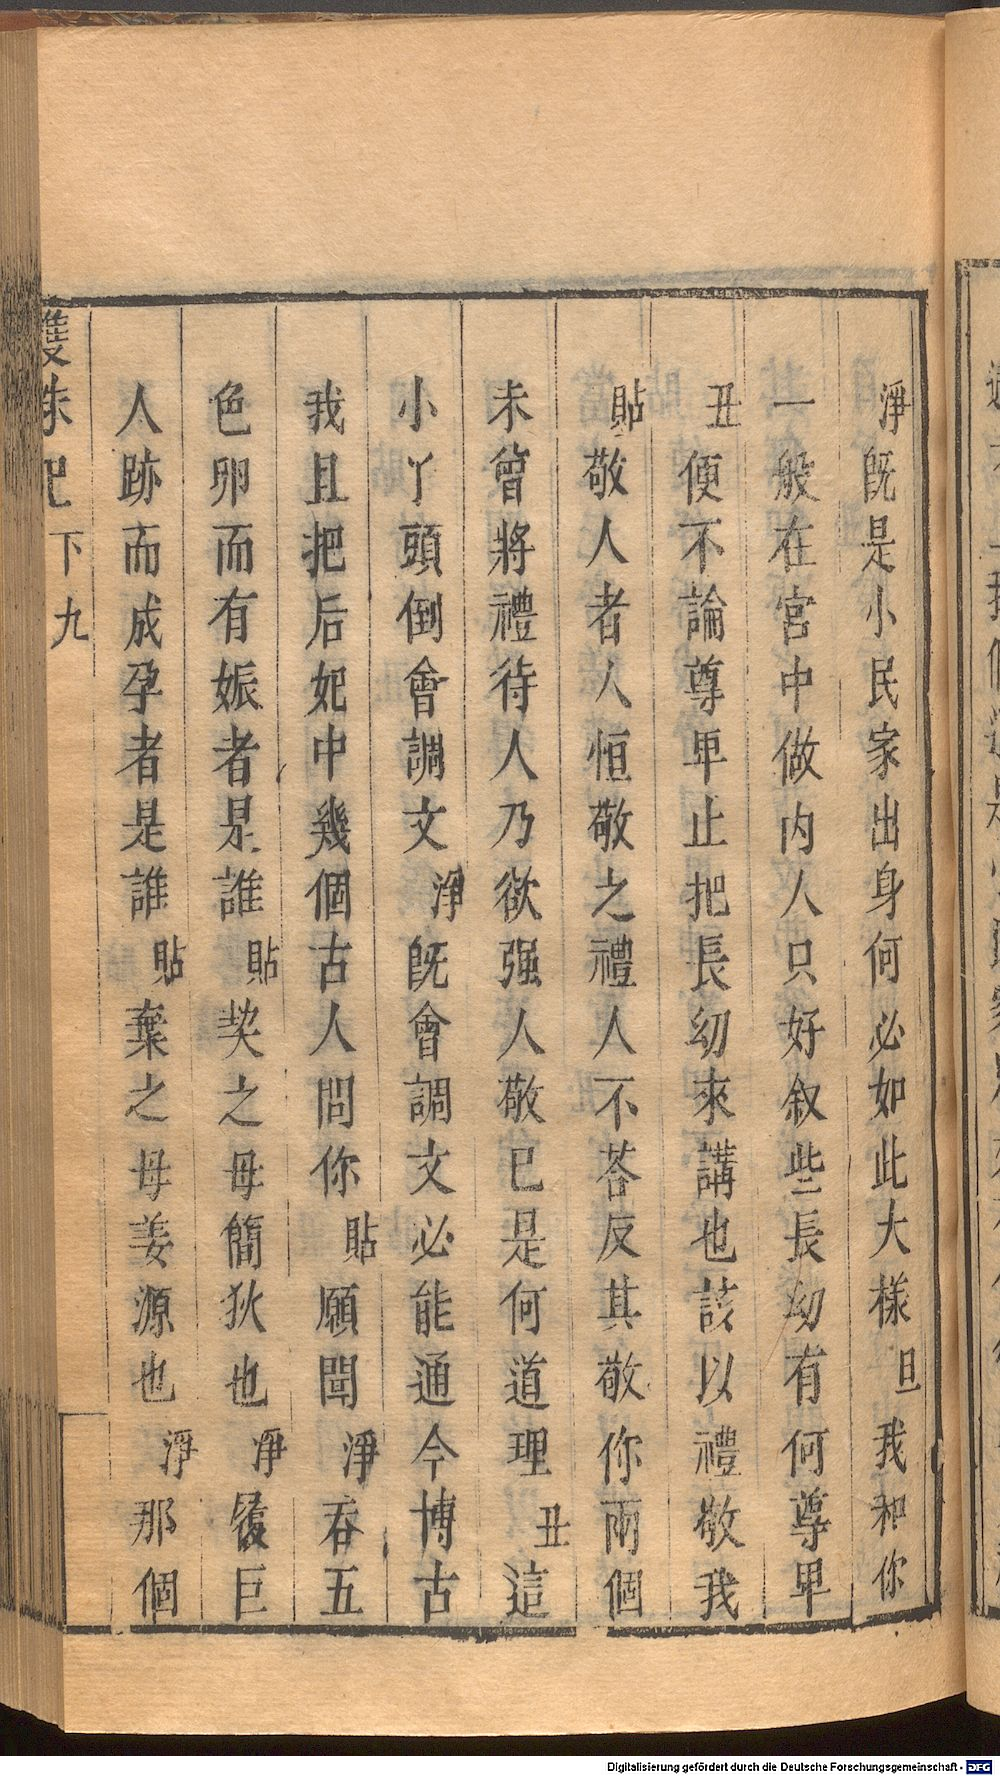 淨既是小民家出身何必如此大樣旦我和你
一般在宮中做內人只好叙些長幼有何尊卑
丑便不論尊卑止把長幼來講也該以禮敬我
貼敬人者人恒敬之禮人不荅反其敬你兩個
未曾將禮待人乃欲强人敬已是何道理丑這
小丫頭倒會調文淨既會調文必能通今博古
我且把后妃中幾個古人問你貼願聞淨吞五
色卵而有娠者是誰貼契之母簡狄也淨履巨
人跡而成孕者是誰貼棄之母姜源也淨那個
雙珠記 下 九
Digitalisierung gefördert durch die Deutsche Forschungsgemeinschaft - DFG